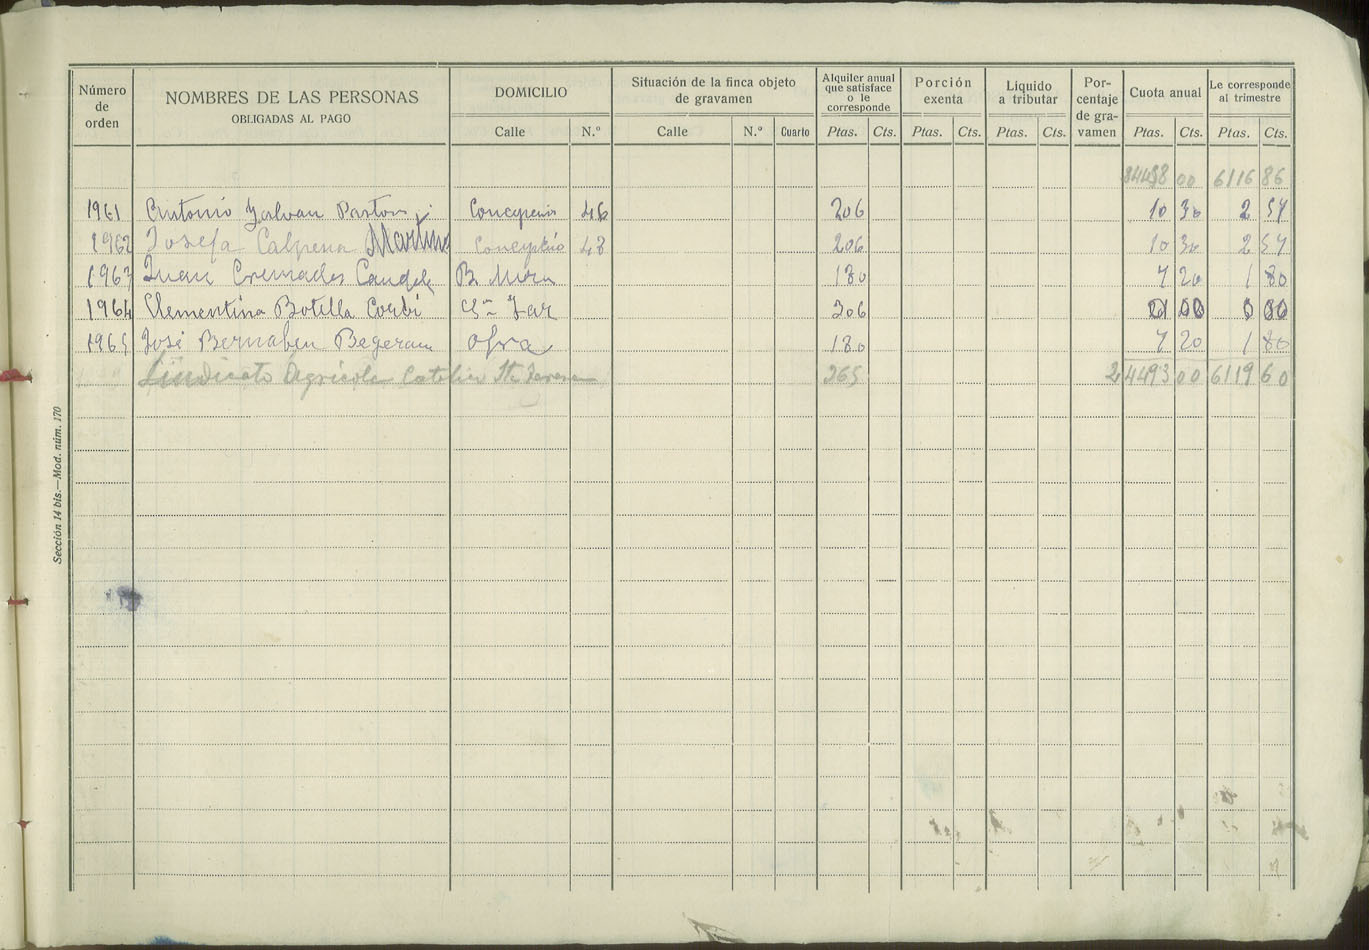 Número de orden NOMBRES DE LAS PERSONAS OBLIGADAS AL PAGO DOMICILIO Situación de la finca objeto de gravamen Alquiler anual que satisface o le corresponde Porción exenta Líquido a tributar Porcentaje de gravamen Cuota anual Le corresponde al trimestre
Calle N.º Calle N.º Cuarto Ptas. Cts. Ptas. Cts. Ptas. Cts. Ptas. Cts. Ptas. Cts.
00 6116 86
1961 Antonio Galvan Pastor Concepcion 46 206 10 30 2 57
1962 Josefa Calpena Martinez Concepción 48 206 10 30 2 57
1963 Juan Cremades Candela B. 180 7 20 1 80
1964 Clementina Botella Corbi 206
1965 José Bernabeu 180 7 20 1 80
Sindicato Agricola Catolico Sta Teresa 265 24493 00 6119 60
Sección 14 bis.—Mod. núm. 170